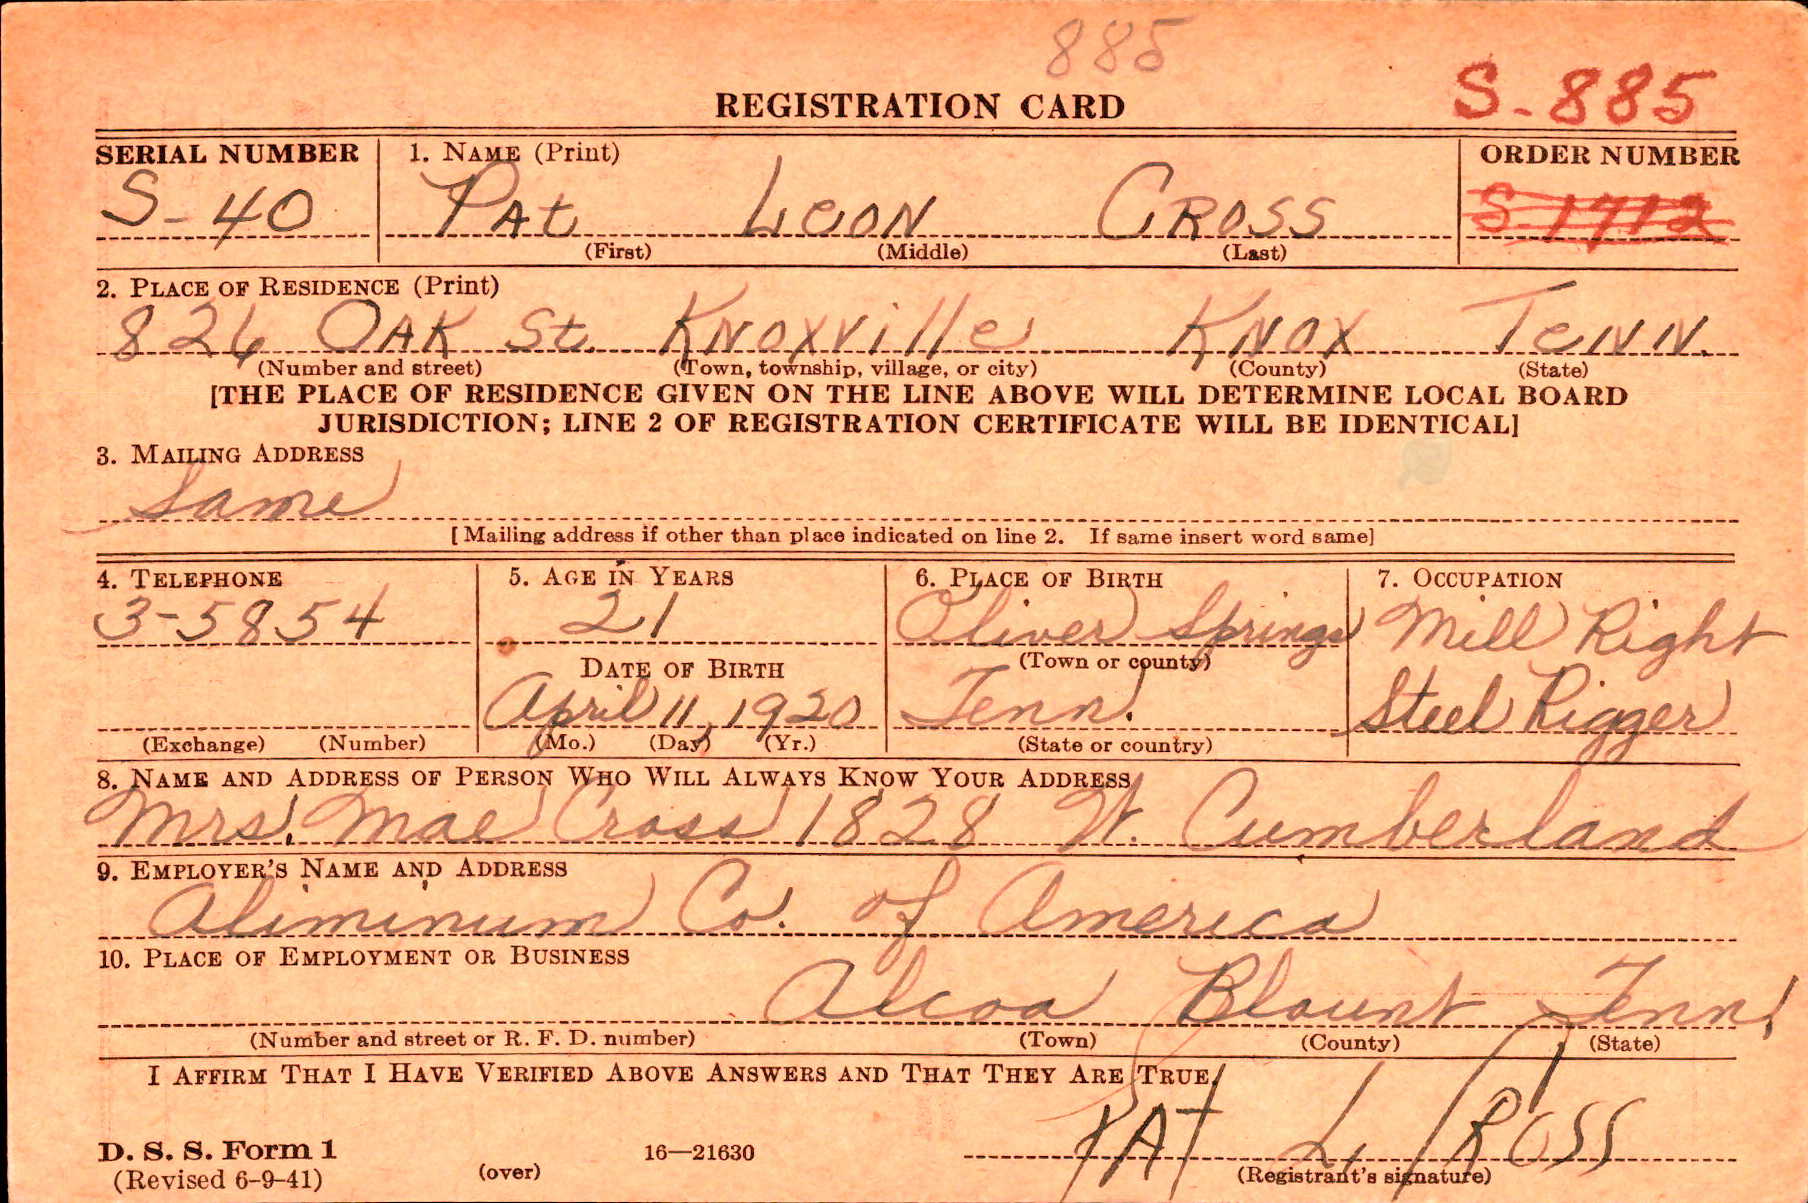 885
REGISTRATION CARD S-885
SERIAL NUMBER 1. NAME (Print) ORDER NUMBER
S-40 PAt LeoN CROSS S-1712
(First) (Middle) (Last)
2. PLACE OF RESIDENCE (Print)
826 OAK St. KNOXVille KNOX TeNN.
(Number and street) (Town, township, village, or city) (County) (State)
[THE PLACE OF RESIDENCE GIVEN ON THE LINE ABOVE WILL DETERMINE LOCAL BOARD
JURISDICTION; LINE 2 OF REGISTRATION CERTIFICATE WILL BE IDENTICAL]
3. MAILING ADDRESS
Same
[Mailing address if other than place indicated on line 2. If same insert word same]
4. TELEPHONE 5. AGE IN YEARS 6. PLACE OF BIRTH 7. OCCUPATION
3-5854 21 Oliver Springs Mill Right
DATE OF BIRTH (Town or county)
April 11, 1920 Tenn. Steel Rigger
(Exchange) (Number) (Mo.) (Day) (Yr.) (State or country)
8. NAME AND ADDRESS OF PERSON WHO WILL ALWAYS KNOW YOUR ADDRESS
Mrs. Mae Cross 1828 W. Cumberland
9. EMPLOYER'S NAME AND ADDRESS
Aliminum Co. of America
10. PLACE OF EMPLOYMENT OR BUSINESS
Alcoa Blount Tenn.
(Number and street or R. F. D. number) (Town) (County) (State)
I AFFIRM THAT I HAVE VERIFIED ABOVE ANSWERS AND THAT THEY ARE TRUE.
PAT L CROSS
D. S. S. Form 1
(Revised 6-9-41) (over) 16—21630 (Registrant's signature)